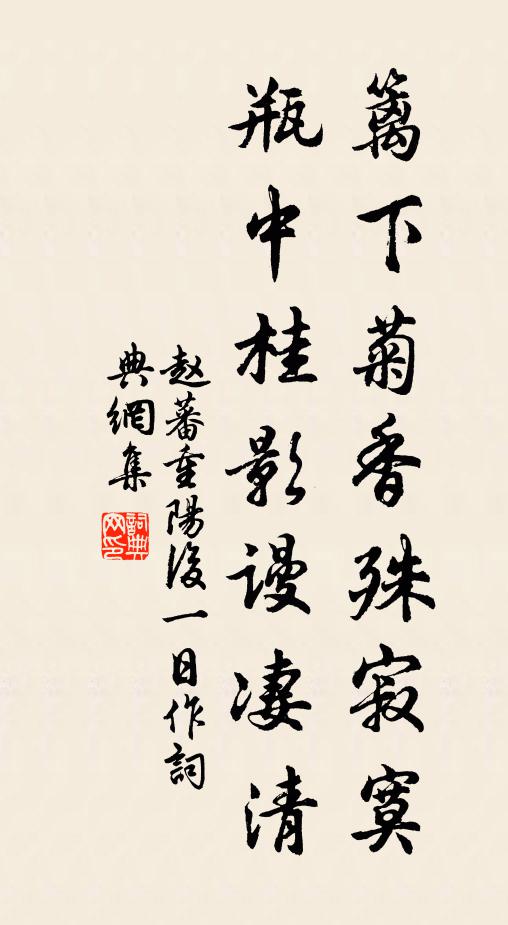 籬下菊香殊寂寞
瓶中桂影謾凄清
赵蕃重陽後一日作詞
典網集
詞典網印